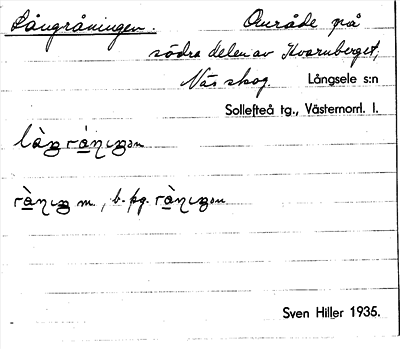 Långråningen. Område på
södra delen av Kvarnberget,
Näs skog. Långsele s:n
Sollefteå tg., Västernorrl. l.
m., b. pg.
Sven Hiller 1935.